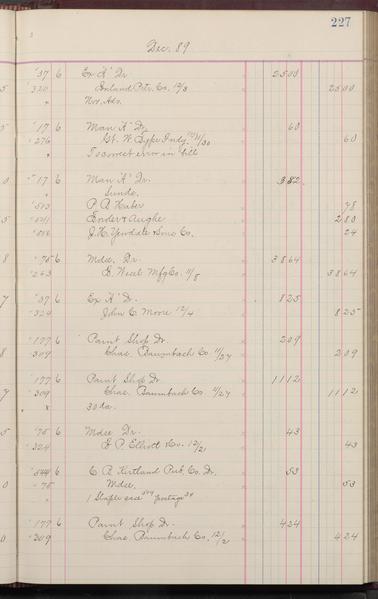 227
Dec. 89
37 6 Ex "A" Dr. 2500
320 Inland Ptr. Co. 12/3 2500
" Nov. Ads.
17 6 Man "A" Dr. 60
276 Gt. W. Type Fndy. 11/30 60
" To correct error in bill
17 6 Man "A" Dr. 382
" Sunds.
P. A. Haber 78
280
J. H. Yewdale & Sons Co. 24
75 6 Mdse. Dr. 3864
263 Mfg Co. 11/8 3864
37 6 Ex "A" Dr. 825
324 John C. Moore 12/4 825
177 6 Paint Shop Dr. 209
309 Chas. Baumbach Co. 11/27 209
177 6 Paint Shop Dr. 1112
309 Chas. Baumbach Co. 11/27 1112
" 30 da.
75 6 Mdse Dr. 43
324 Elliott & Co. 12/2 43
544 6 C. A. Kirtland Pub. Co. Dr. 53
75 Mdse. 53
" 1 Staple postage
177 6 Paint Shop Dr. 424
309 Chas. Baumbach Co. 12/2 424